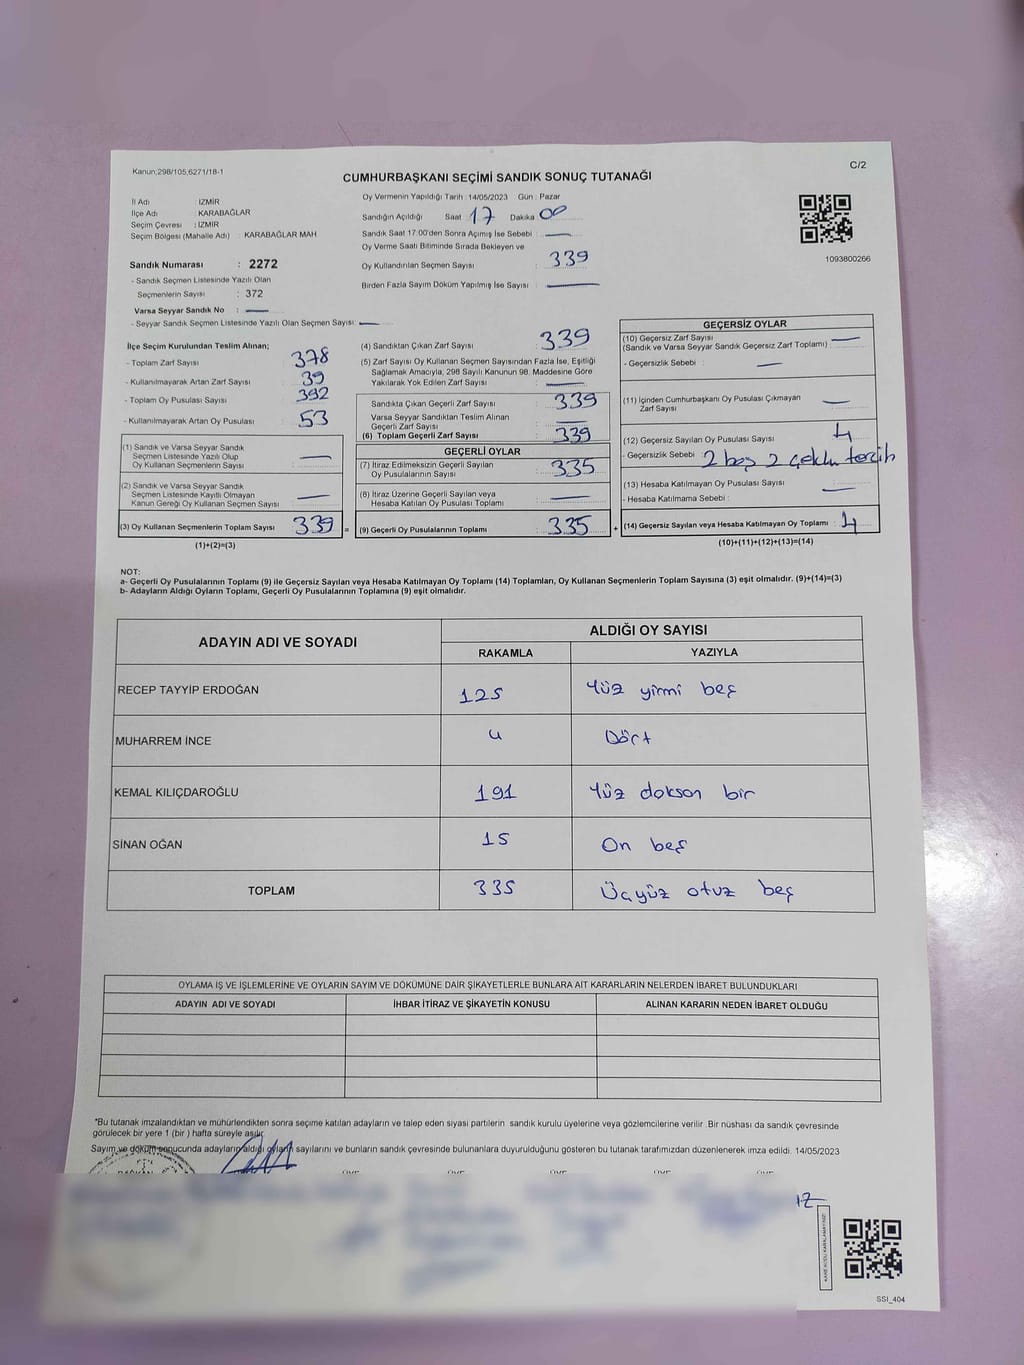 Kanun:298/105,6271/18-1
C/2
CUMHURBAŞKANI SEÇİMİ SANDIK SONUÇ TUTANAĞI
İl Adı : İZMİR
İlçe Adı : KARABAĞLAR
Seçim Çevresi : İZMİR
Seçim Bölgesi (Mahalle Adı) : KARABAĞLAR MAH.
Sandık Numarası : 2272
- Sandık Seçmen Listesinde Yazılı Olan
Seçmenlerin Sayısı : 372
Varsa Seyyar Sandık No :
- Seyyar Sandık Seçmen Listesinde Yazılı Olan Seçmen Sayısı:
Oy Vermenin Yapıldığı Tarih : 14/05/2023 Gün : Pazar
Sandığın Açıldığı Saat 17 Dakika 00
Sandık Saat 17:00'den Sonra Açımış İse Sebebi :
Oy Verme Saati Bitiminde Sırada Bekleyen ve
Oy Kullandırılan Seçmen Sayısı : 339
Birden Fazla Sayım Döküm Yapılmış İse Sayısı :
1093800266
İlçe Seçim Kurulundan Teslim Alınan;
- Toplam Zarf Sayısı : 378
- Kullanılmayarak Artan Zarf Sayısı : 39
- Toplam Oy Pusulası Sayısı : 392
- Kullanılmayarak Artan Oy Pusulası : 53
(1) Sandık ve Varsa Seyyar Sandık
Seçmen Listesinde Yazılı Olup
Oy Kullanan Seçmenlerin Sayısı :
(2) Sandık ve Varsa Seyyar Sandık
Seçmen Listesinde Kayıtlı Olmayan
Kanun Gereği Oy Kullanan Seçmen Sayısı :
(3) Oy Kullanan Seçmenlerin Toplam Sayısı 339 =
(1)+(2)=(3)
(4) Sandıktan Çıkan Zarf Sayısı : 339
(5) Zarf Sayısı Oy Kullanan Seçmen Sayısından Fazla İse, Eşitliği
Sağlamak Amacıyla, 298 Sayılı Kanunun 98. Maddesine Göre
Yakılarak Yok Edilen Zarf Sayısı :
Sandıkta Çıkan Geçerli Zarf Sayısı : 339
Varsa Seyyar Sandıktan Teslim Alınan
Geçerli Zarf Sayısı :
(6) Toplam Geçerli Zarf Sayısı : 339
GEÇERLİ OYLAR
(7) İtiraz Edilmeksizin Geçerli Sayılan
Oy Pusulalarının Sayısı : 335
(8) İtiraz Üzerine Geçerli Sayılan veya
Hesaba Katılan Oy Pusulası Toplamı :
(9) Geçerli Oy Pusulalarının Toplamı : 335 +
GEÇERSİZ OYLAR
(10) Geçersiz Zarf Sayısı
(Sandık ve Varsa Seyyar Sandık Geçersiz Zarf Toplamı) :
- Geçersizlik Sebebi :
(11) İçinden Cumhurbaşkanı Oy Pusulası Çıkmayan
Zarf Sayısı :
(12) Geçersiz Sayılan Oy Pusulası Sayısı : 4
- Geçersizlik Sebebi : 2 boş 2 çoklu tercih
(13) Hesaba Katılmayan Oy Pusulası Sayısı :
- Hesaba Katılmama Sebebi :
(14) Geçersiz Sayılan veya Hesaba Katılmayan Oy Toplamı : 4
(10)+(11)+(12)+(13)=(14)
NOT:
a- Geçerli Oy Pusulalarının Toplamı (9) ile Geçersiz Sayılan veya Hesaba Katılmayan Oy Toplamı (14) Toplamları, Oy Kullanan Seçmenlerin Toplam Sayısına (3) eşit olmalıdır. (9)+(14)=(3)
b- Adayların Aldığı Oyların Toplamı, Geçerli Oy Pusulalarının Toplamına (9) eşit olmalıdır.
ADAYIN ADI VE SOYADI
ALDIĞI OY SAYISI
RAKAMLA YAZIYLA
RECEP TAYYİP ERDOĞAN 125 Yüz yirmi beş
MUHARREM İNCE 4 Dört
KEMAL KILIÇDAROĞLU 191 Yüz doksan bir
SİNAN OĞAN 15 On beş
TOPLAM 335 Üçyüz otuz beş
OYLAMA İŞ VE İŞLEMLERİNE VE OYLARIN SAYIM VE DÖKÜMÜNE DAİR ŞİKAYETLERLE BUNLARA AİT KARARLARIN NELERDEN İBARET BULUNDUKLARI
ADAYIN ADI VE SOYADI İHBAR İTİRAZ VE ŞİKAYETİN KONUSU ALINAN KARARIN NEDEN İBARET OLDUĞU
*Bu tutanak imzalandıktan ve mühürlendikten sonra seçime katılan adayların ve talep eden siyasi partilerin sandık kurulu üyelerine veya gözlemcilerine verilir. Bir nüshası da sandık çevresinde
görülecek bir yere 1 (bir ) hafta süreyle asılır.
Sayım ve döküm sonucunda adayların aldığı oyların sayılarını ve bunların sandık çevresinde bulunanlara duyurulduğunu gösteren bu tutanak tarafımızdan düzenlenerek imza edildi. 14/05/2023
SSI_404